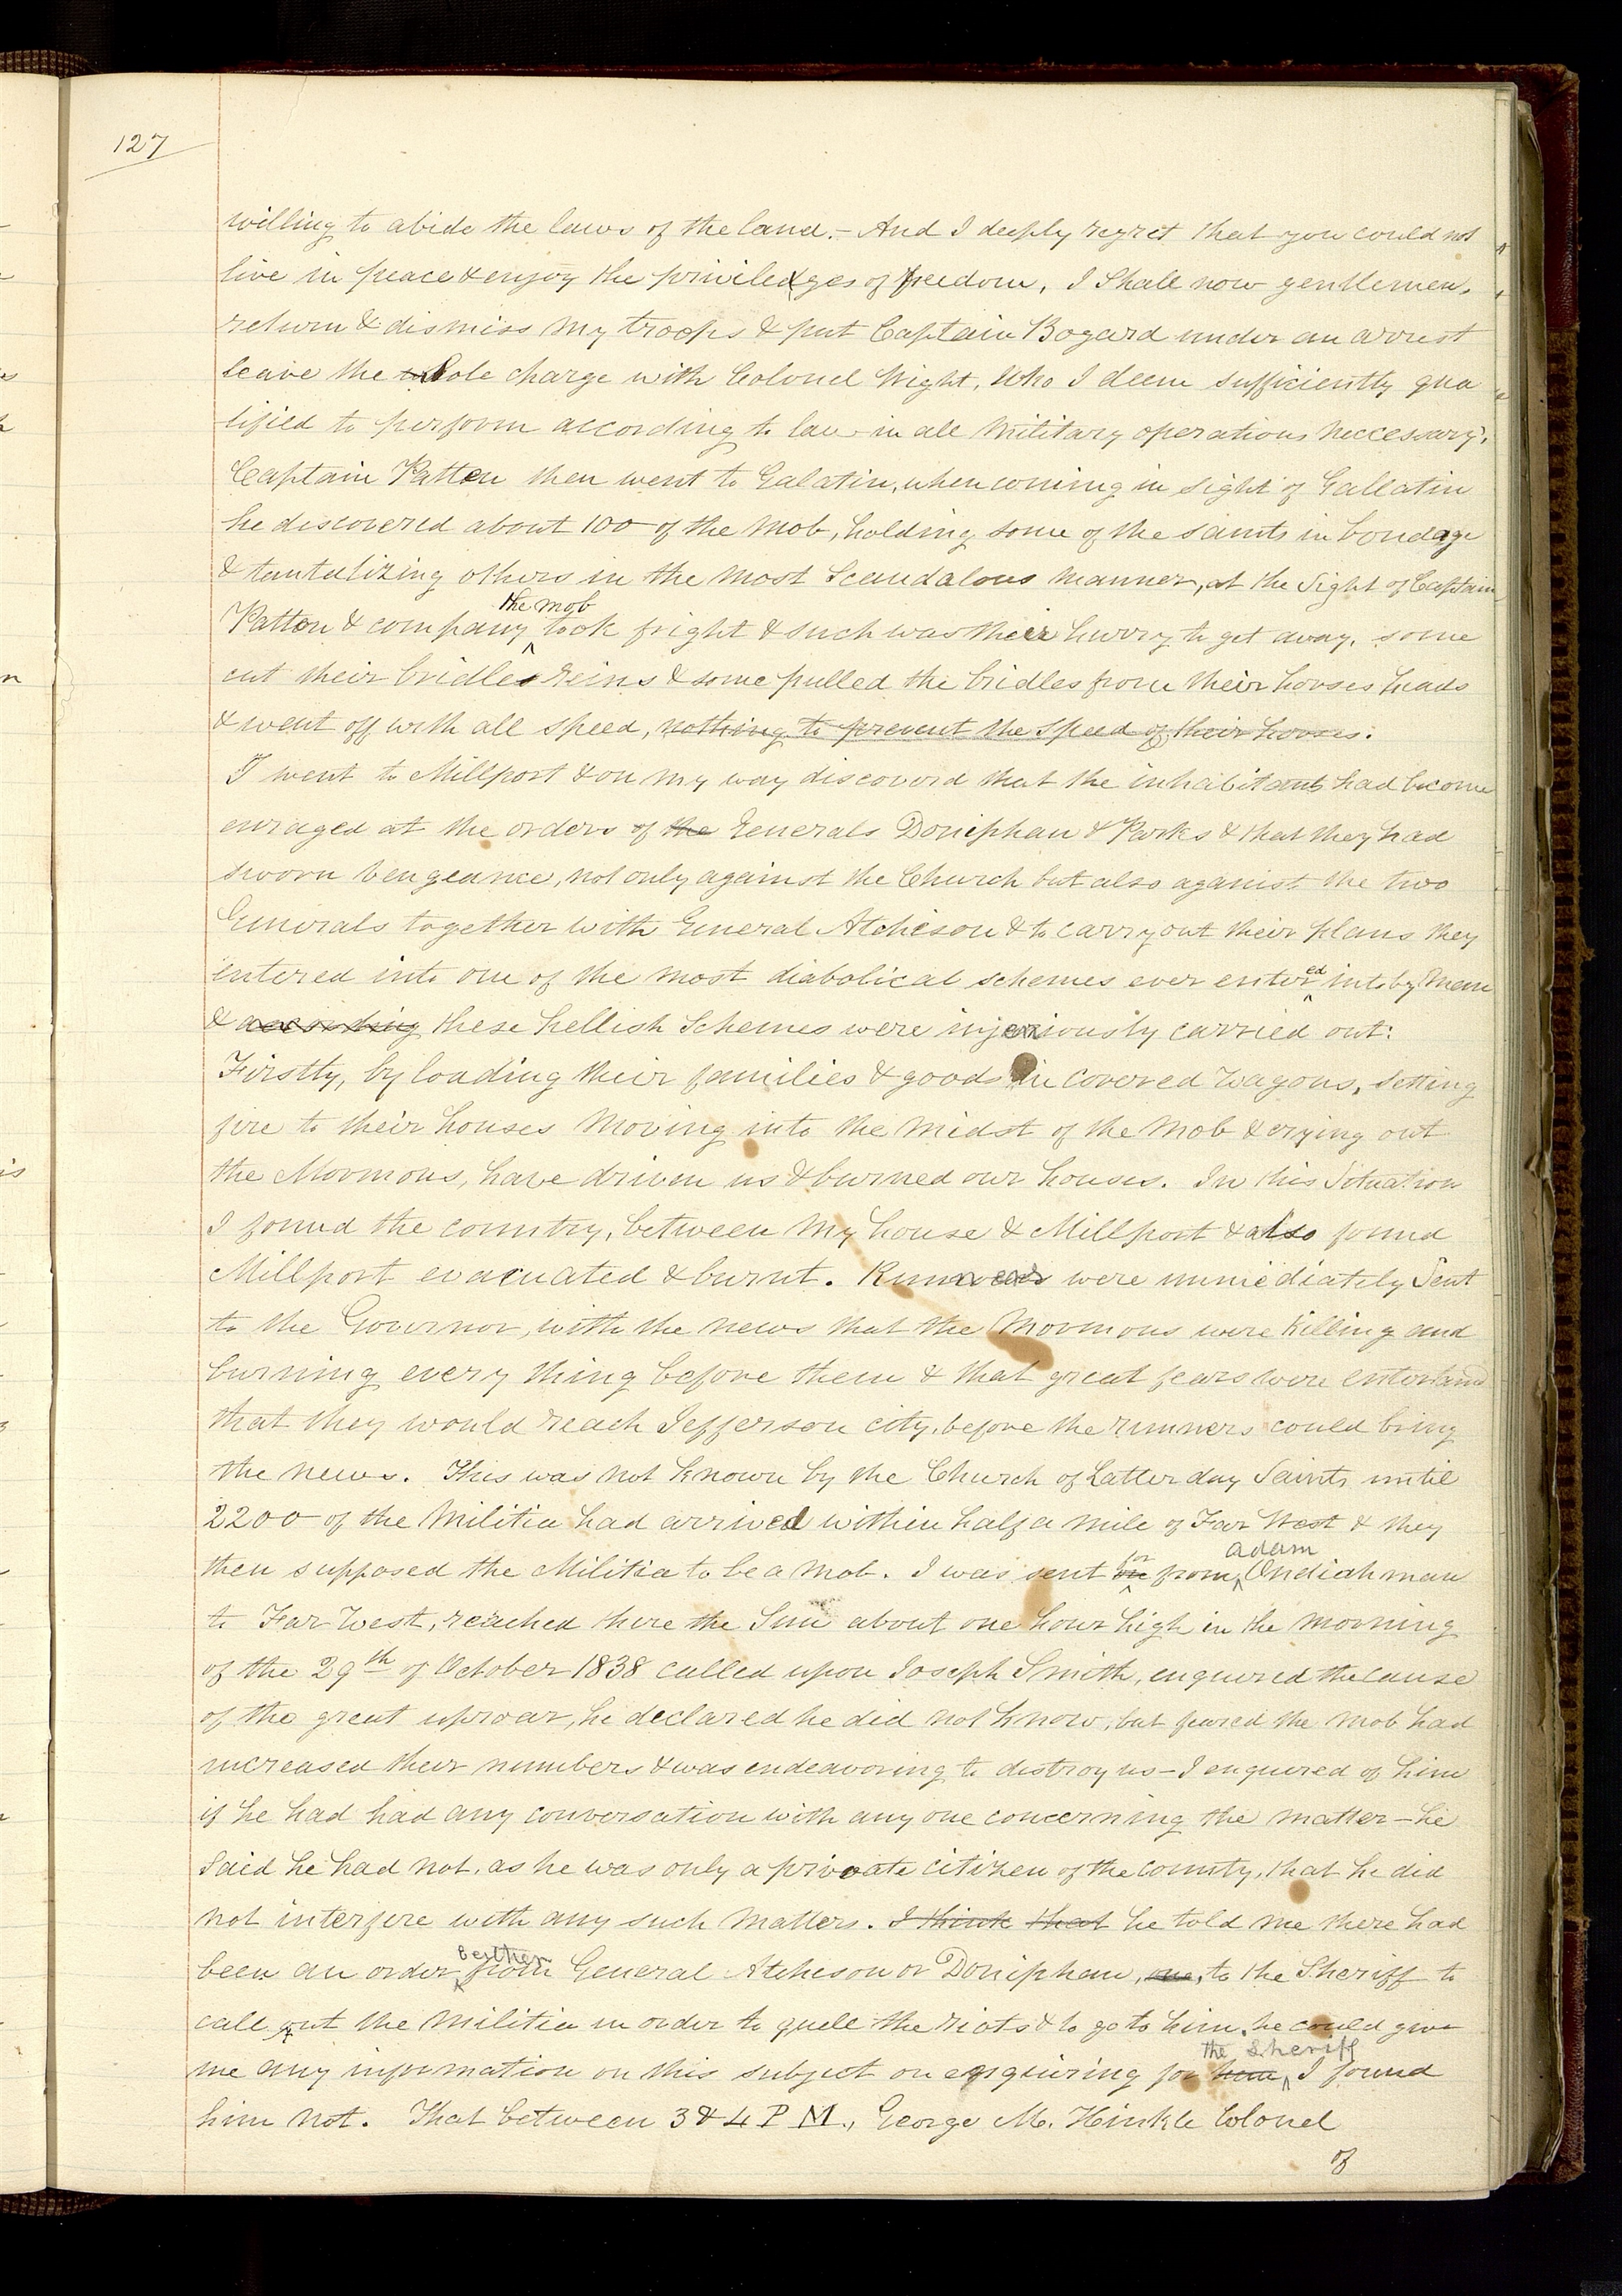 127
willing to abide the laws of the land.- And I deeply regret that you could not
live in peace & enjoy the priviledges of freedom, I shall now gentlemen,
return & dismiss my troops & put Captain Bogard under an arrest
leave the sole charge with Colonel Wight, who I deem sufficiently qua
lified to perform according to law in all Military operations neccessary.
Captain Patten then went to Galatin, when coming in sight of Gallatin
he discovered about 100 of the Mob, holding some of the saints in bondage
& tantalizing others in the most Scandalous manner, at the sight of Captain
the mob
Patten & company took fright & such was their hurry to get away, some
cut their bridle reins & some pulled the bridles from their horses heads
& went off with all speed, nothing to prevent the speed of their horses.
I went to Millport & on my way discoverd that the inhabitants had become
enraged at the orders of the Generals Doniphan & Parks & that they had
sworn vengeance, not only against the Church but also against the two
Generals together with General Atcheson & to carry out their plans they
entered into one of the most diabolical schemes ever entered into by Men
& according these hellish Schemes were injeniously carried out:
Firstly, by loading their families & goods in covered Wagons, setting
fire to their houses Moving into the Midst of the Mob & crying out
the Mormons, have driven us & burned our houses. In this Situation
I found the country, between My house & Millport & also found
Millport evacuated & burnt. Runners were immediately Sent
to the Governor, with the news that the Mormons were killing and
burning every thing before them & that great fears were entertained
that they would reach Jefferson city, before the runners could bring
the news. This was not known by the Church of Latter day Saints, until
2200 of the Militia had arrived within half a mile of Far West & they
adam
then supposed the Militia to be a Mob. I was sent for from Ondiahman
to Far West, reached there the Sun about one hour high in the morning
of the 29th of October 1838 called upon Joseph Smith, enquired the cause
of the great uproar, he declared he did not know, but feared the Mob had
increased their numbers & was endeavoring to destroy us – I enquired of him
if he had had any conversation with any one concerning the matter – he
Said he had not, as he was only a private citizen of the county, that he did
not interfere with any such Matters. I think that he told me there had
been an order from General Atcheson or Doniphan, one, to the Sheriff to
call out the Militia in order to quell the riots & to go to him, he could give
the Sheriff
me any information on this subject on enquiring for him, I found
him not. That between 3 & 4 P M., George M. Hinkle Colonel
of